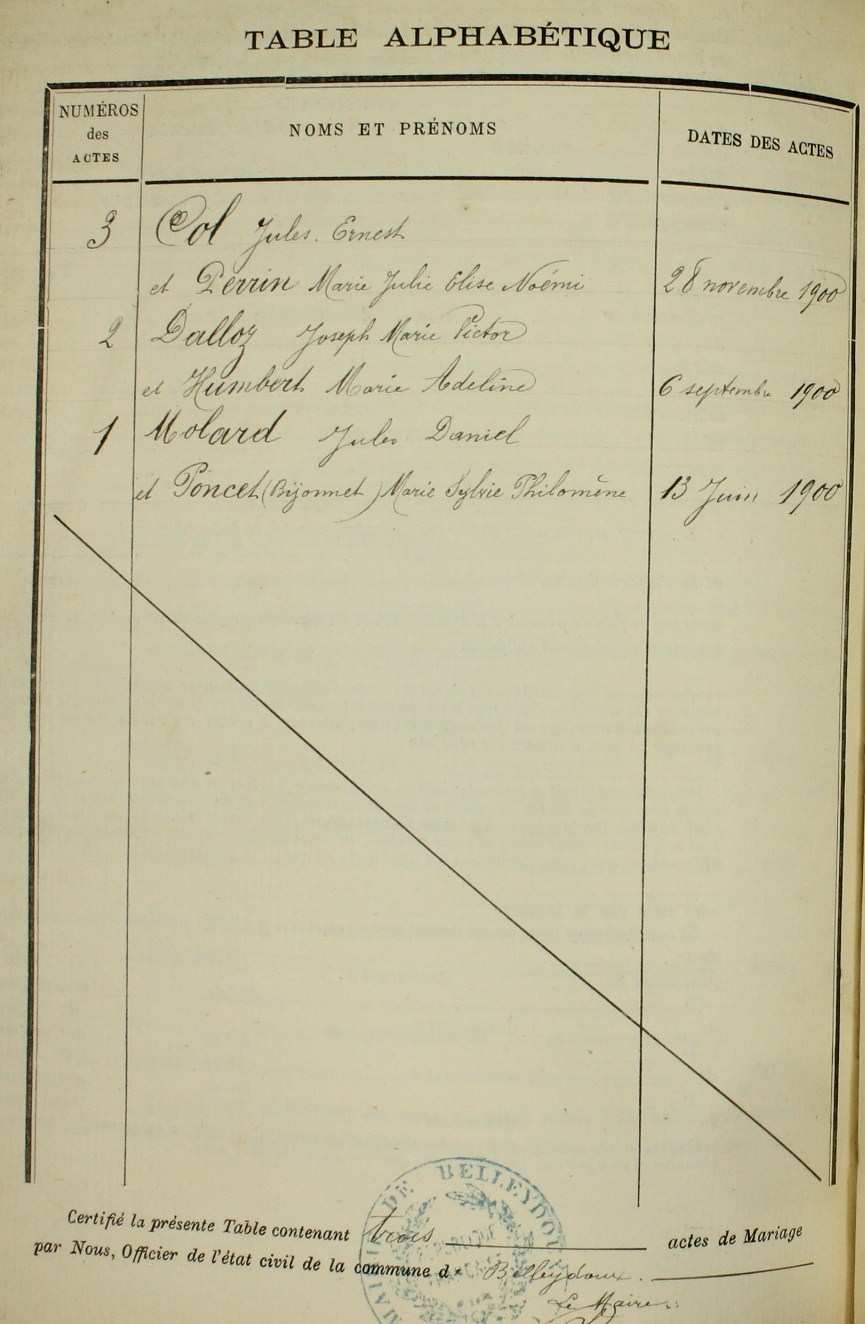 TABLE ALPHABÉTIQUE
NUMÉROS
des
ACTES
NOMS ET PRÉNOMS
DATES DES ACTES
3 Col Jules. Ernest
et Perrin Marie Julie Elise Noémi 28 novembre 1900
2 Dalloz Joseph Marie Victor
et Humbert Marie Adeline 6 septembre 1900
1 Molard Jules Daniel
et Poncet (Bijonnet) Marie Sylvie Philomène 13 Juin 1900
DE BELLEYDOU
Certifié la présente Table contenant trois actes de Mariage
par Nous, Officier de l'état civil de la commune d Belleydoux.
Le Maire